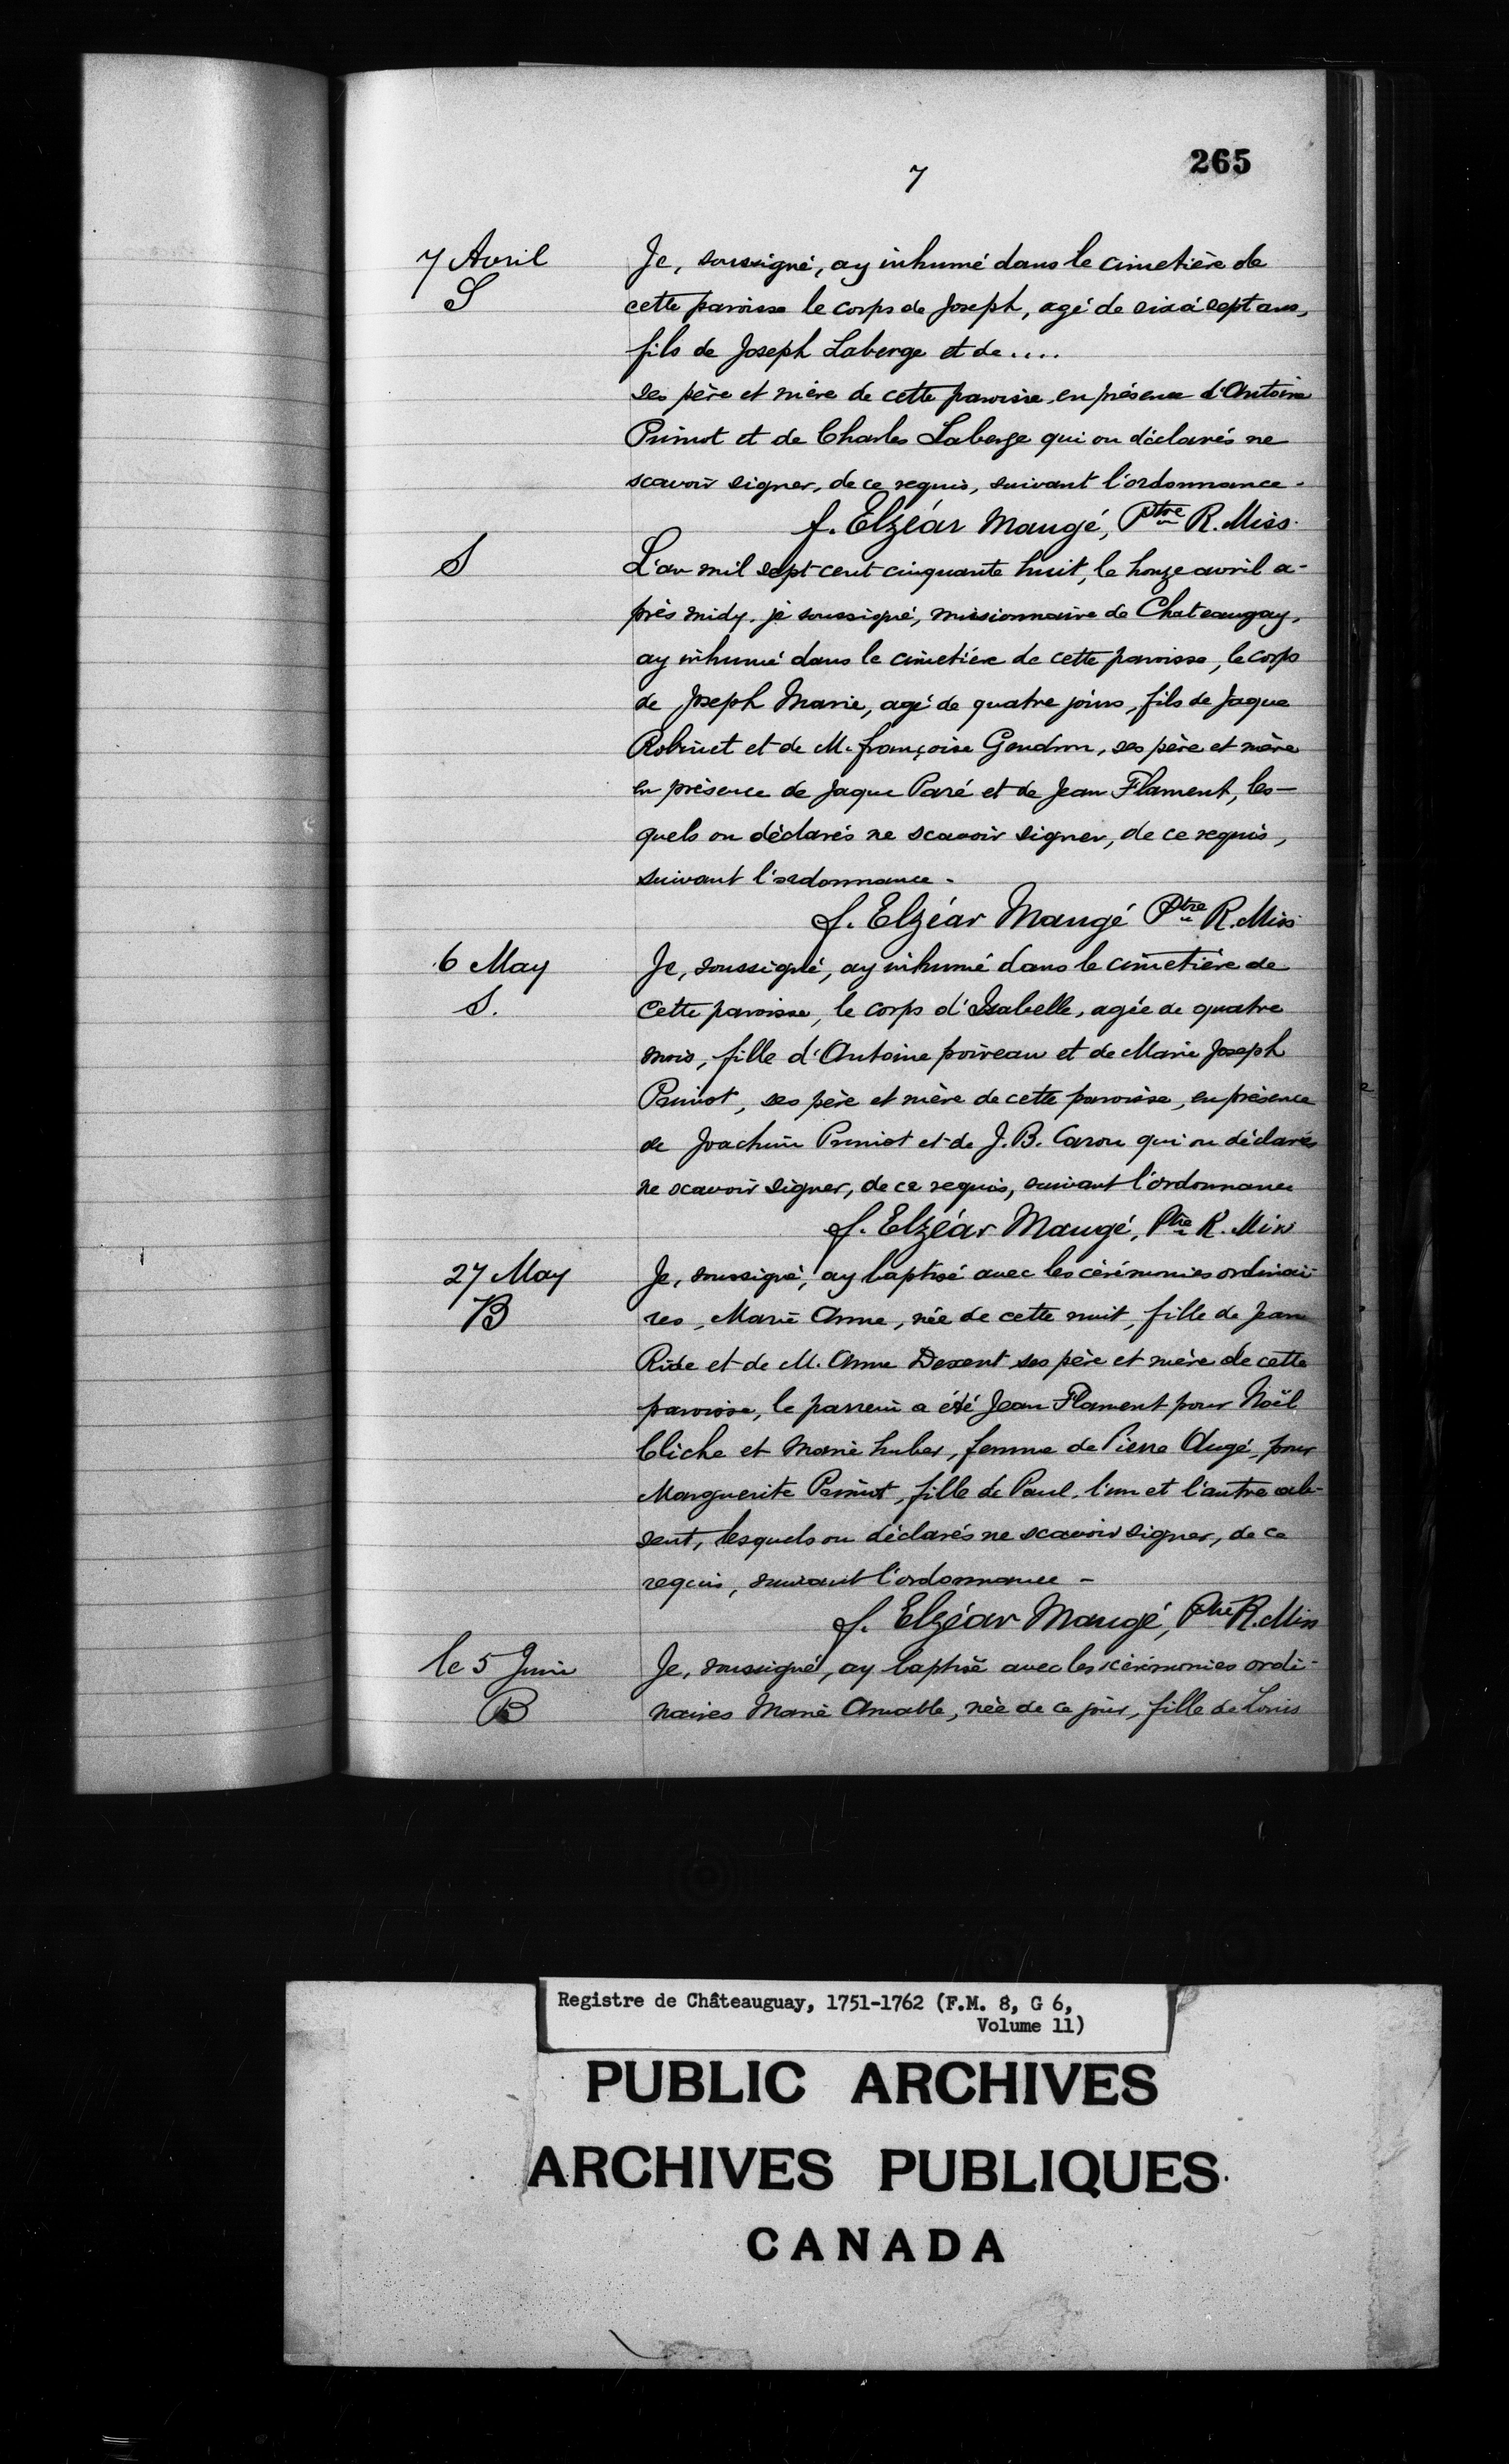 265
7
7 Avril
S
Je, soussigné, ay inhumé dans le cimetière de
cette paroisse le corps de Joseph, agé de six à sept ans,
fils de Joseph Laberge et de....
ses père et mère de cette paroisse, en présence d'Antoine
Primot et de Charles Laberge qui on déclarés ne
scavoir signer, de ce requis, suivant l'ordonnance.
f. Elzéar Maugé, Ptre R. Miss.
S
L'an mil sept cent cinquante huit, le honze avril a-
près midy, je soussigné, missionnaire de Chateaugay,
ay inhumé dans le cimetière de cette paroisse, le corps
de Joseph Marie, agé de quatre jours, fils de Jaque
Robinet et de M. françoise Gendron, ses père et mère
en présence de Jaque Paré et de Jean Flament, les-
quels on déclarés ne scavoir signer, de ce requis,
suivant l'ordonnance.
f. Elzéar Maugé Ptre R. Miss
6 May
S.
Je, soussigné, ay inhumé dans le cimetière de
cette paroisse, le corps d'Isabelle, agée de quatre
mois, fille d'Antoine poireau et de Marie Joseph
Primot, ses père et mère de cette paroisse, en présence
de Joachim Primot et de J. B. Caron qui on déclarés
ne scavoir signer, de ce requis, suivant l'ordonnance
f. Elzéar Maugé, Ptre R. Miss
27 May
B
Je, soussigné, ay baptisé avec les cérémonies ordinai-
res, Marie Anne, née de cette nuit, fille de Jean
Ride et de M. Anne Dexent ses père et mère de cette
paroisse, le parrein a été Jean Flament pour Noël
Cliche et Marie huber, femme de Pierre Augé, pour
Marguerite Primot, fille de Paul, l'un et l'autre ab-
sent, lesquels on déclarés ne scavoir signer, de ce
requis, suivant l'ordonnance -
f. Elzéar Maugé, Ptre R. Miss
le 5 Juin
B
Je, soussigné, ay baptisé avec les cérémonies ordi-
naires Marie Amable, née de ce jour, fille de Louis
Registre de Châteauguay, 1751-1762 (F.M. 8, G 6,
Volume 11)
PUBLIC ARCHIVES
ARCHIVES PUBLIQUES
CANADA